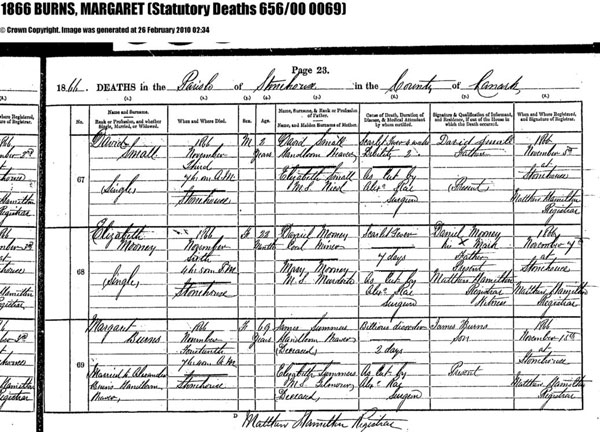 1866 BURNS, MARGARET (Statutory Deaths 656/00 0069)
© Crown Copyright. Image was generated at 26 February 2010 02:34
Page 23.
1866. DEATHS in the Parish of Stonehouse in the County of Lanark
No.
Name and Surname.
Rank or Profession, and whether Single, Married, or Widowed.
When and Where Died.
Sex.
Age.
Name, Surname, & Rank or Profession of Father.
Name, and Maiden Surname of Mother.
Cause of Death, Duration of Disease, & Medical Attendant by whom certified.
Signature & Qualification of Informant, and Residence, if out of the House in which the Death occurred.
When and where Registered, and Signature of Registrar.
67
David Small
Single
1866
November
Third
7h. 10m. A.M.
Stonehouse
M
2
Years
David Small
Handloom Weaver
Elizabeth Small
M.S.
As Cert by
Surgeon
David Small
Father
Present
1866
November
at
Stonehouse
Matthew Hamilton
Registrar
68
Elizabeth
Mooney
Single
1866
November
Sixth
Stonehouse
F
22
Months
Daniel Mooney
Coal Miner
Mary Mooney
M.S. Murdoch
Scarlet Fever
7 days
As Cert by
Surgeon
Daniel Mooney
his x Mark
Father
Present
Matthew Hamilton
Registrar
Witness
1866
November 7th
at
Stonehouse
Matthew Hamilton
Registrar
69
Margaret
Burns
Married to Alexander
Burns Handloom
Weaver
1866
November
Fourteenth
Stonehouse
F
69
Years
James Summers
Handloom Weaver
Deceased
Elizabeth Summers
M.S. Gilmour
Deceased
Billious disorder
2 days
As Cert by
Surgeon
James Burns
Son
Present
1866
November 15th
at
Stonehouse
Matthew Hamilton
Registrar
Matthew Hamilton Registrar